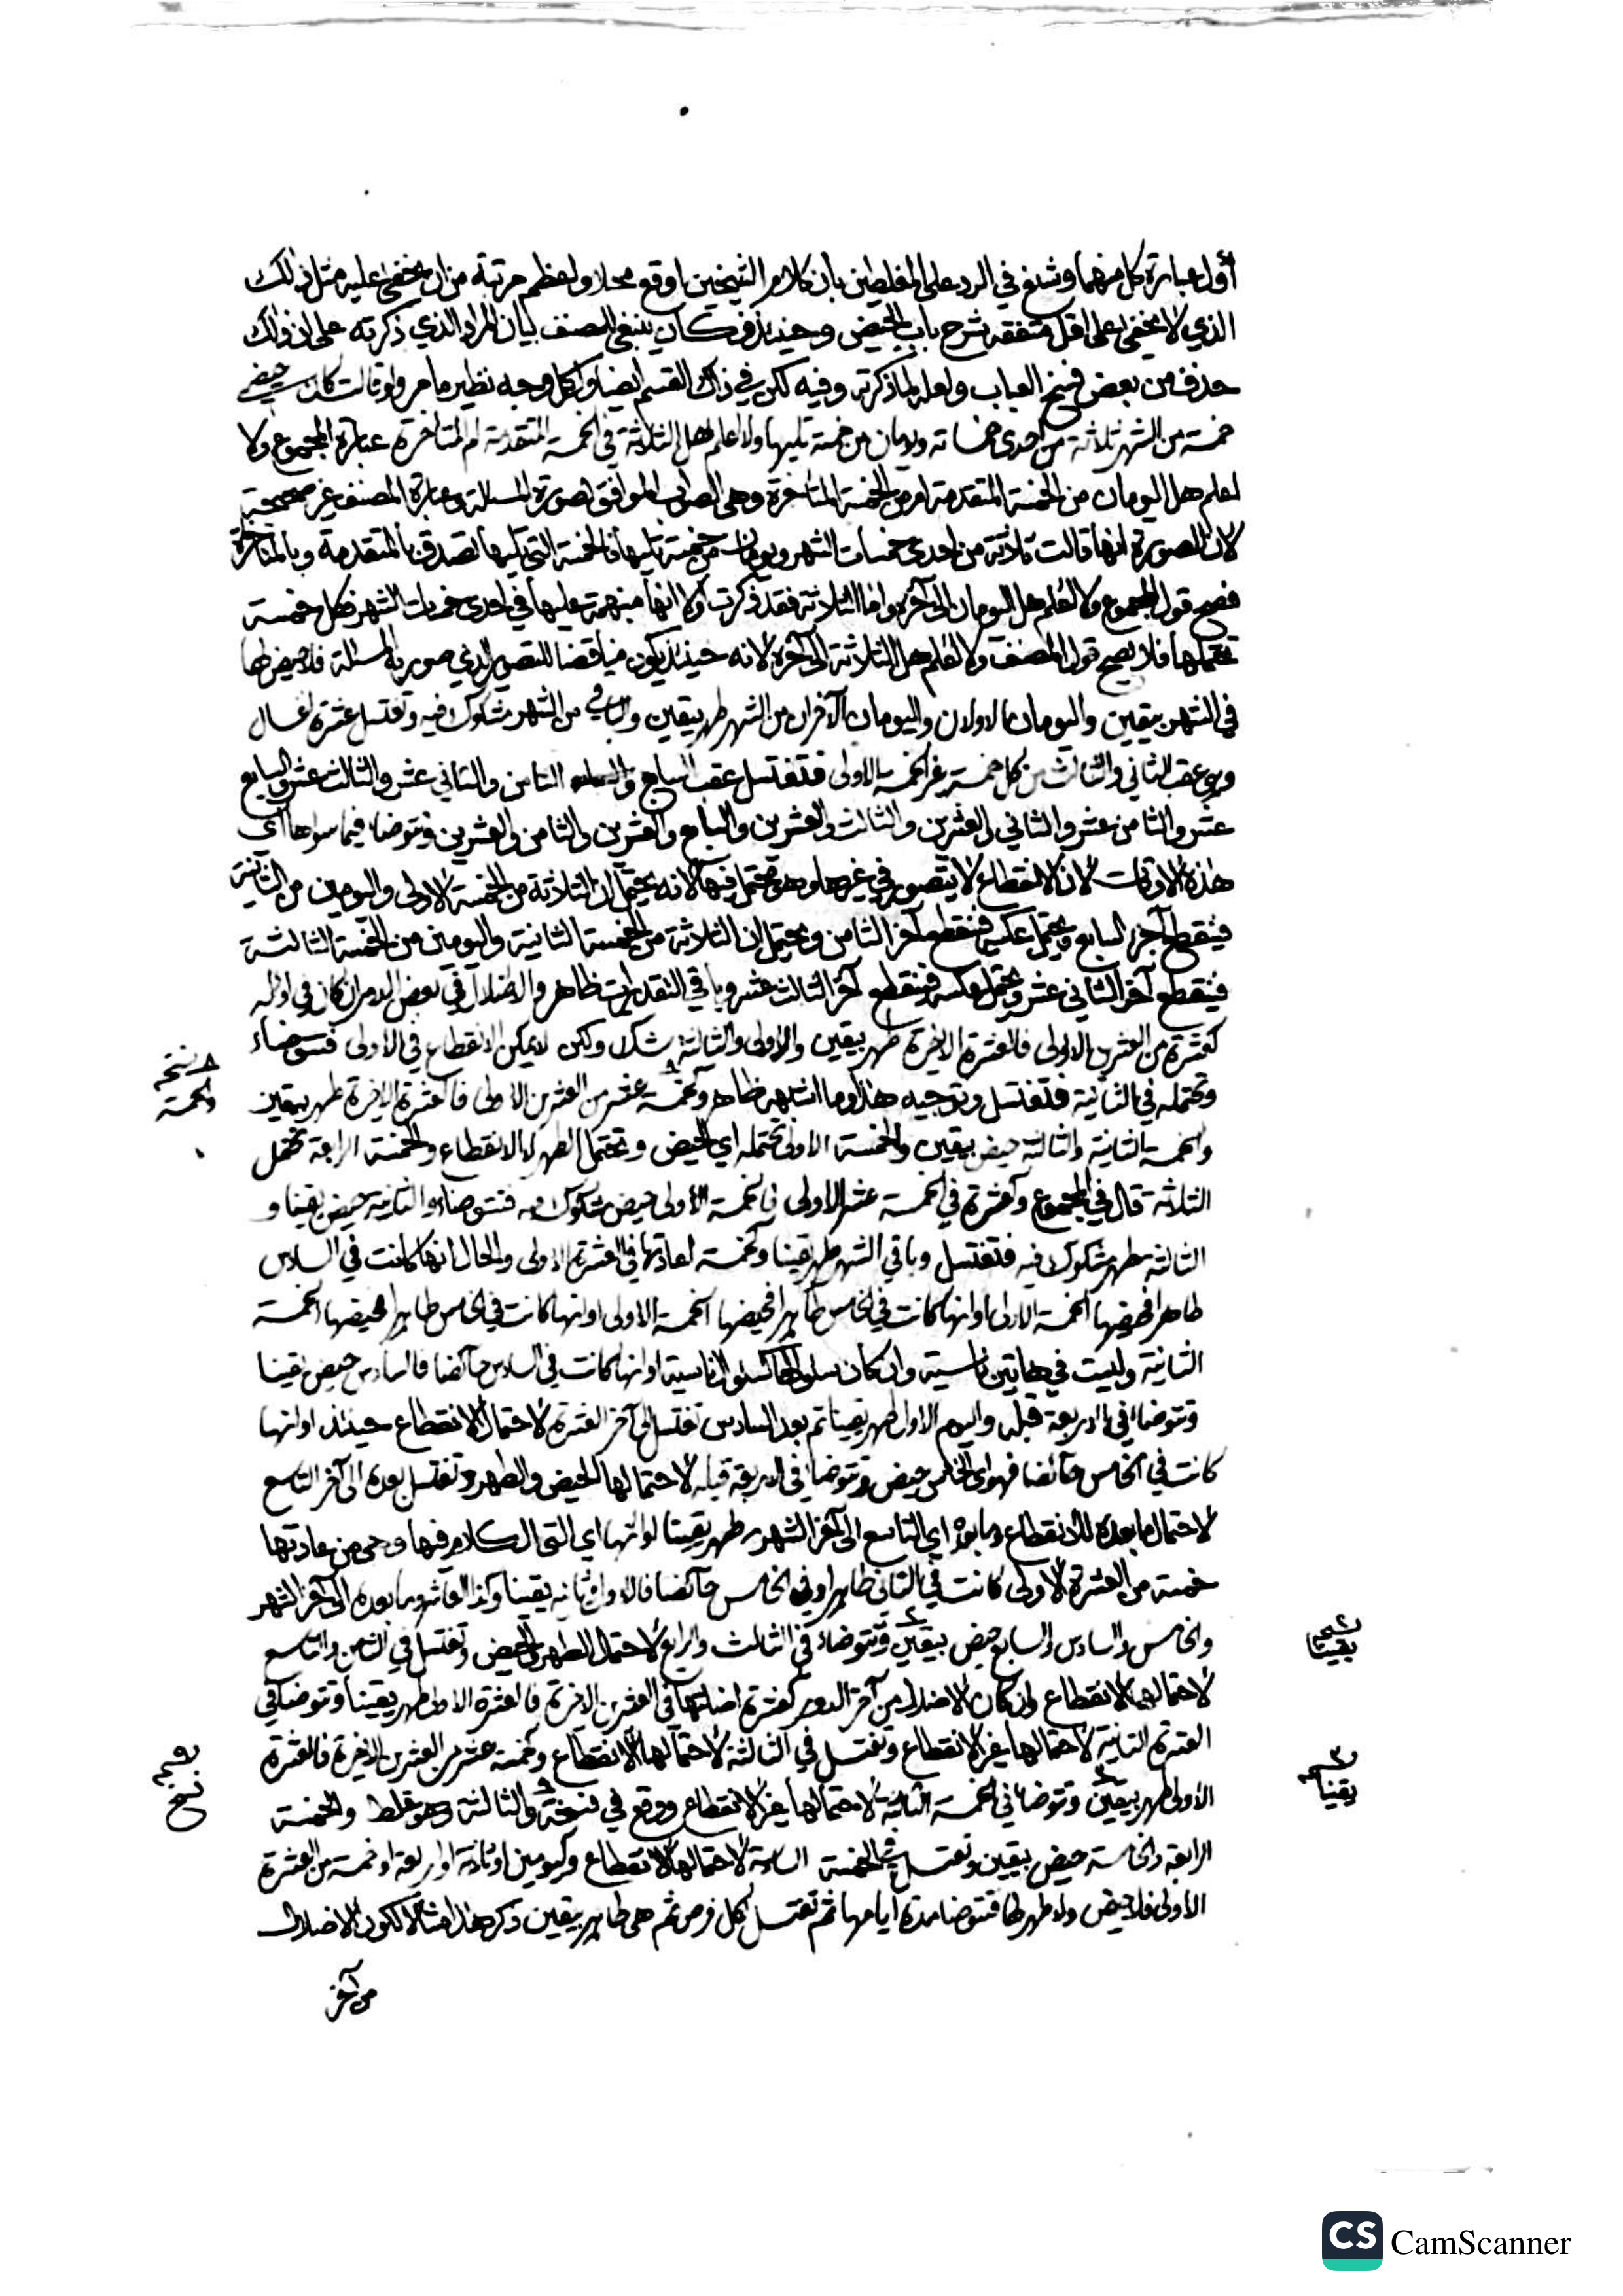 أول عبارة كل منهما وشنع في الرد على المغلطين بأن كلام الشيخين اوقع محلا واعظم مرتبة من ان يخفى عليه مثل ذلك
الذي لا يخفى على اقل متفقه بشرح باب الحيض وحينئذ فكان ينبغي للمصنف بيان المراد الذي ذكرته على ان ذلك
حذف من بعض نسخ العباب ولعله لما ذكرته وفيه لكن في ذلك القسم ايضا ولكل وجه نظير ما مر ولو قالت كان حيضي
خمسة من الشهر ثلاثة من احدى خمساته ويومان من خمسة تليها ولا اعلم هل الثلاثة في الخمسة المتقدمة ام المتاخرة عبارة المجموع ولا
اعلم هل اليومان من الخمسة المتقدمة ام من الخمسة المتاخرة وهي الصواب الموافق لصورة المسئلة وعبارة المصنف غير صحيحة
لان الصورة انها قالت ثلاثة من احدى خمسات الشهر ويومان من خمسة تليها فالخمسة التي تليها تصدق بالمتقدمة وبالمتاخرة
فصح قول المجموع ولا اعلم هل اليومان الى آخره واما الثلاثة فقد ذكرت اولا انها منبهمة عليها في احدى خمسات الشهر فكل خمسة
تحتملها فلا يصح قول المصنف ولا اعلم هل الثلاثة الى آخره لانه حينئذ يكون مناقضا للتصوير الذي صور به المسئلة فلا حيض لها
في الشهر بيقين واليومان الاولان واليومان الآخران من الشهر طهر بيقين والباقي من الشهر مشكوك فيه وتغتسل عشرة اغسال
وهي عقب الثاني والثالث من كل خمسة غير الخمسة الاولى فتغتسل عقب السابع والثامن والثاني عشر والثالث عشر والسابع
عشر والثامن عشر والثاني والعشرين والثالث والعشرين والسابع والعشرين والثامن والعشرين وتتوضا فيما سواها اي
هذه الاوقات لان الانقطاع لا يتصور في غيرها وهو محتمل فيها لانه يحتمل ان الثلاثة من الخمسة الاولى واليومين من الثانية
فينقطع آخر السابع ويحتمل عكسه فينقطع آخر الثامن ويحتمل ان الثلاثة من الخمسة الثانية واليومين من الخمسة الثالثة
فينقطع آخر الثاني عشر ويحتمل عكسه فينقطع آخر الثالث عشر وباقي التقديرات ظاهر والاضلال في بعض الدور ان كان في اوله
كعشرة من العشرين الاولى فالعشرة الاخيرة طهر بيقين والاولى والثانية شك ولكن لا يمكن الانقطاع في الاولى فتتوضاء
وتحتمله في الثانية فتغتسل وتوجيه هذا وما اشبهه ظاهر وكخمسة عشر من العشرين الاولى فالعشرة الاخيرة طهر بيقين
والخمسة الثانية والثالثة حيض بيقين والخمسة الاولى تحتمله اي الحيض وتحتمل الطهر لا الانقطاع والخمسة الرابعة تحتمل
الثلاثة قال في المجموع وكعشرة في الخمسة عشر الاولى فالخمسة الاولى حيض مشكوك فيه فتتوضاء والثانية حيض يقينا و
الثالثة طهر مشكوك فيه فتغتسل وباقي الشهر طهر يقينا وكخمسة اعادتها في العشرة الاولى والحال انها كانت في السادس
طاهرا فحيضها الخمسة الاولى او انها كانت في الخامس طاهرا فحيضها الخمسة الاولى او انها كانت في الخامس طاهرا فحيضها الخمسة
الثانية وليست في هاتين ناسية وان كان سلوكها كسلوك الناسية او انها كانت في السادس حائضا فالسادس حيض يقينا
وتتوضا في الاربعة قبله واليوم الاول طهر يقينا ثم بعد السادس تغتسل الى آخر العشرة لاحتمال الانقطاع حينئذ او انها
كانت في الخامس حائضا فهو اي الخامس حيض وتتوضا في الاربعة قبله لاحتمالها الحيض والطهر وتغتسل بعده الى آخر التاسع
لاحتمال ما بعده للانقطاع وما بعده اي التاسع الى آخر الشهر طهر يقينا لو انها اي التي الكلام فيها وهي من عادتها
خمسة من العشرة الاولى كانت في الثاني طاهرا وفي الخامس حائضا فالاولان يقينا وكذا العاشر وما بعده الى آخر الشهر
والخامس والسادس والسابع حيض بيقين وتتوضاء في الثالث والرابع لاحتمال الطهر والحيض وتغتسل في الثامن والتاسع
لاحتمالهما الانقطاع وان كان الاضلال من آخر الدور كعشرة اضلتها في العشرين الاخيرة فالعشرة الاولى طهر يقينا وتتوضا في
العشرة الثانية لاحتمالها غير الانقطاع وتغتسل في الثالثة لاحتمالها الانقطاع وكخمسة عشر من العشرين الاخيرة فالعشرة
الاولى طهر بيقين وتتوضا في الخمسة الثالثة لاحتمالها غير الانقطاع ووقع في نسخة والثالثة وهو غلط والخمسة
الرابعة والخامسة حيض بيقين وتغتسل في الخمسة السادسة لاحتمالها الانقطاع وكيومين او ثلاثة او اربعة او خمسة من العشرة
الاولى فلا حيض ولا طهر لها فتتوضا مدة ايامها ثم تغتسل لكل فرض ثم هي طاهر بيقين ذكر هذا مثالا لكون الاضلال
من آخر
نسخه
والخمسة
نسخه
يقينا
يقينا
نسخ